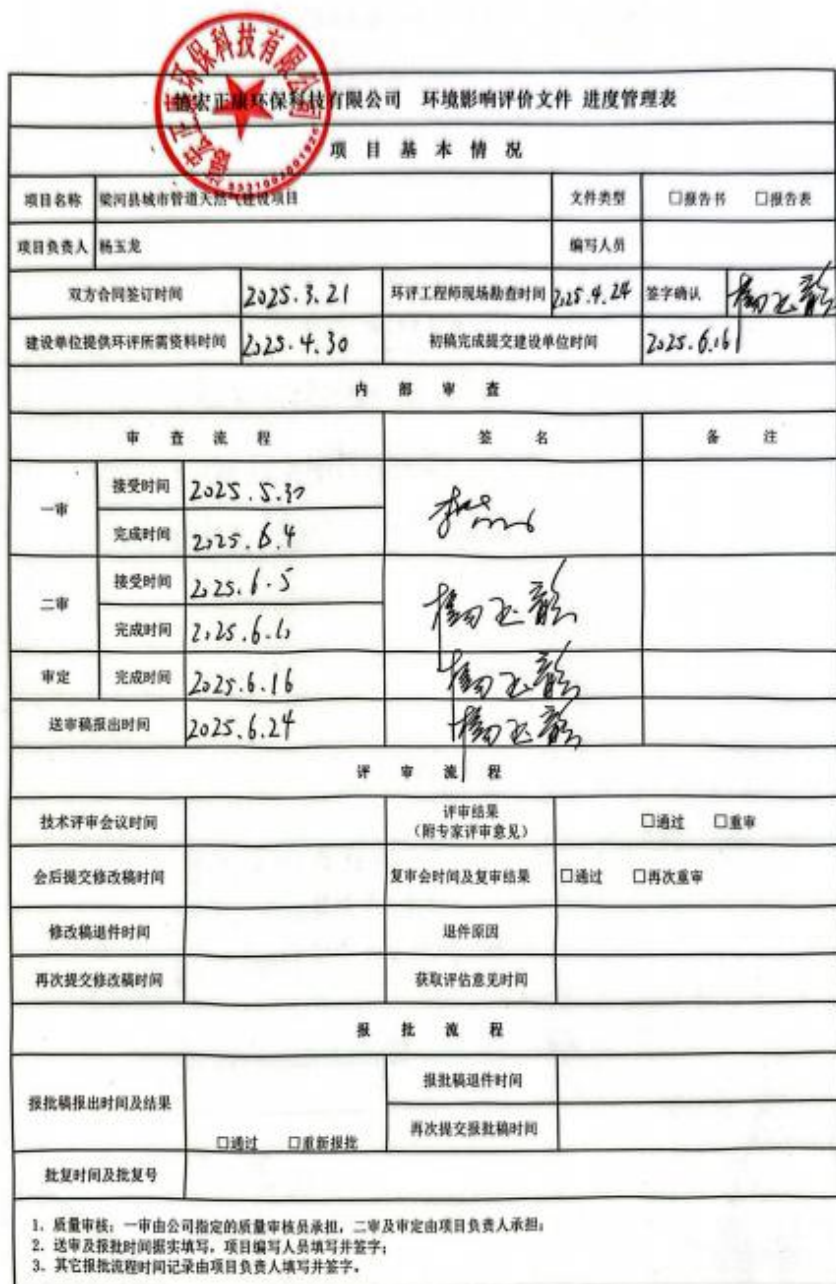 德宏正康环保科技有限公司 环境影响评价文件 进度管理表
项 目 基 本 情 况
项目名称 梁河县城市管道天然气建设项目 文件类型 □报告书 □报告表
项目负责人 杨玉龙 编写人员
双方合同签订时间 2025.3.21 环评工程师现场勘查时间 2025.4.24 签字确认
建设单位提供环评所需资料时间 2025.4.30 初稿完成提交建设单位时间 2025.6.16
内 部 审 查
审 查 流 程 签 名 备 注
一审 接受时间 2025.5.30
完成时间 2025.6.4
二审 接受时间 2025.6.5
完成时间
审定 完成时间 2025.6.16
送审稿报出时间 2025.6.24
评 审 流 程
技术评审会议时间 评审结果
(附专家评审意见) □通过 □重审
会后提交修改稿时间 复审会时间及复审结果 □通过 □再次重审
修改稿退件时间 退件原因
再次提交修改稿时间 获取评估意见时间
报 批 流 程
报批稿报出时间及结果 □通过 □重新报批 报批稿退件时间
再次提交报批稿时间
批复时间及批复号
1、质量审核:一审由公司指定的质量审核员承担,二审及审定由项目负责人承担;
2、送审及报批时间据实填写,项目编写人员填写并签字;
3、其它报批流程时间记录由项目负责人填写并签字。